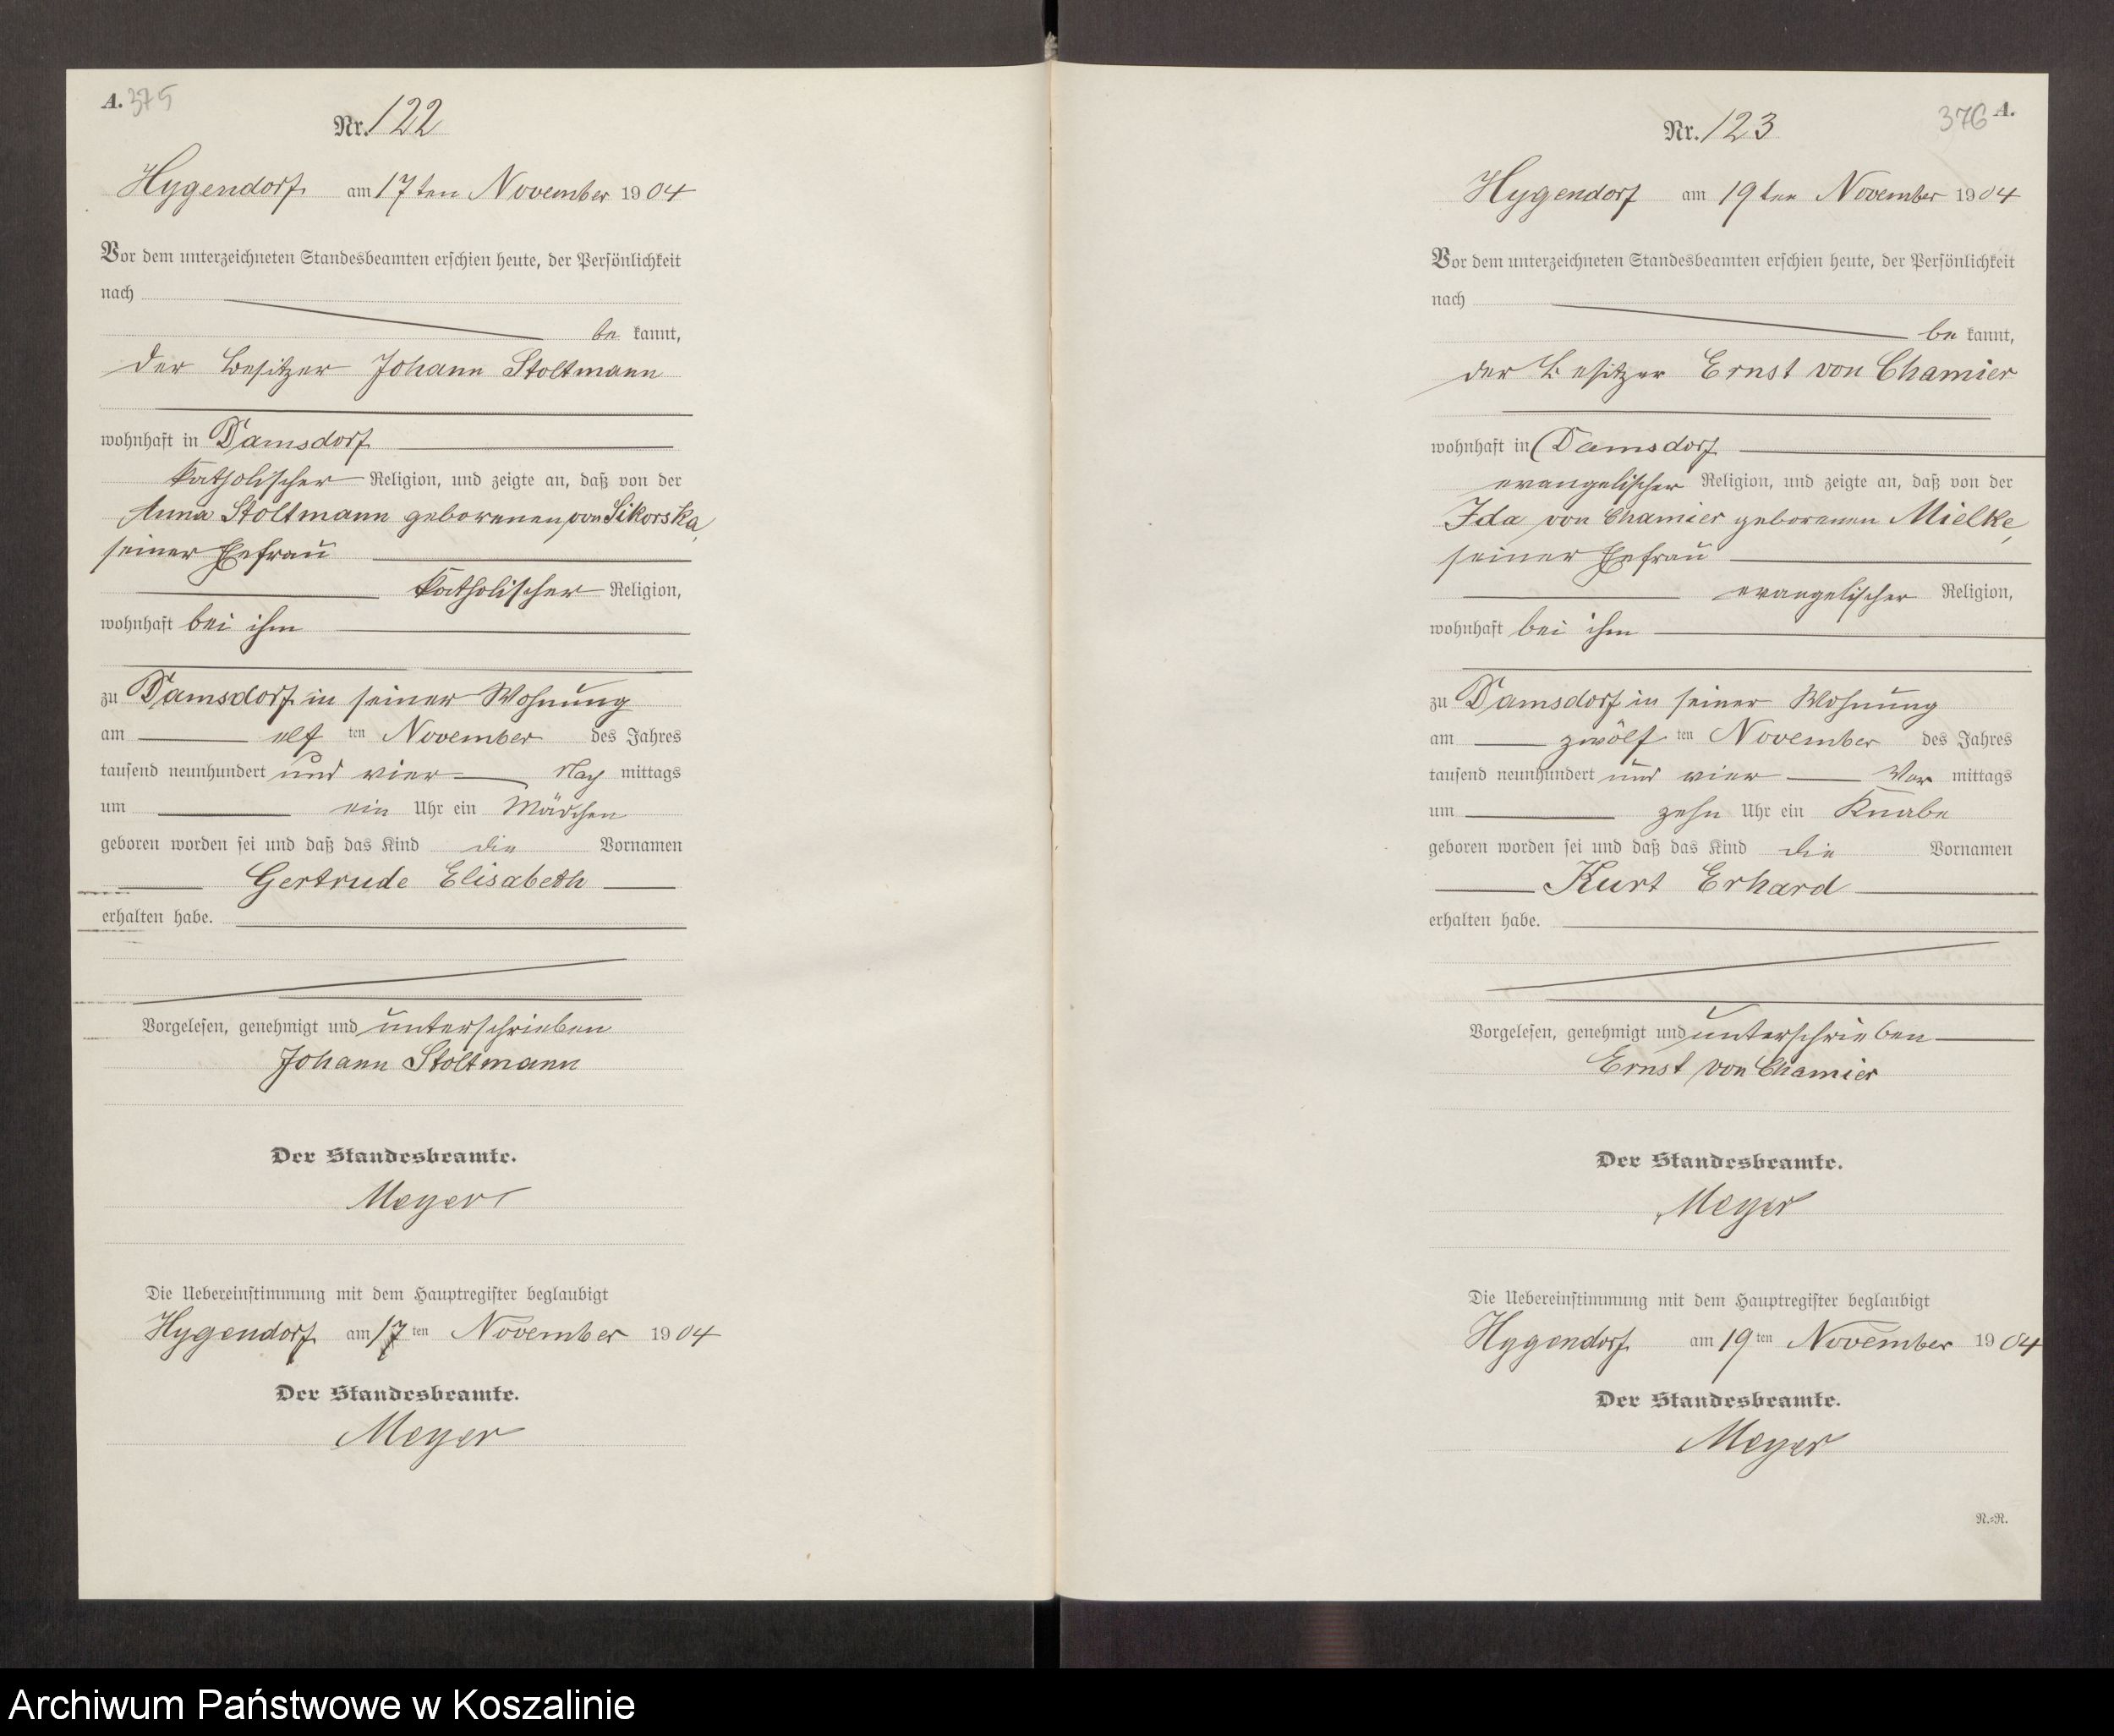 A. 375
Nr. 122
Hygendorf am 17ten November 1904
Vor dem unterzeichneten Standesbeamten erschien heute, der Persönlichkeit
nach
be kannt,
der Besitzer Johann Stoltmann
wohnhaft in Damsdorf
katholischer Religion, und zeigte an, daß von der
Anna Stoltmann geborenen von Sikorska,
seiner Ehefrau
katholischer Religion,
wohnhaft bei ihm
zu Damsdorf in seiner Wohnung
am elf ten November des Jahres
tausend neunhundert und vier Nach mittags
um ein Uhr ein Mädchen
geboren worden sei und daß das Kind die Vornamen
Gertrude Elisabeth
erhalten habe.
Vorgelesen, genehmigt und unterschrieben
Johann Stoltmann
Der Standesbeamte.
Meyer
Die Uebereinstimmung mit dem Hauptregister beglaubigt
Hygendorf am 17 ten November 1904
Der Standesbeamte.
Meyer
376 A.
Nr. 123
Hygendorf am 19ten November 1904
Vor dem unterzeichneten Standesbeamten erschien heute, der Persönlichkeit
nach
be kannt,
der Besitzer Ernst von Chamier
wohnhaft in Damsdorf
evangelischer Religion, und zeigte an, daß von der
Ida von Chamier geborenen Mielke,
seiner Ehefrau
evangelischer Religion,
wohnhaft bei ihm
zu Damsdorf in seiner Wohnung
am zwölf ten November des Jahres
tausend neunhundert und vier Vor mittags
um zehn Uhr ein Knabe
geboren worden sei und daß das Kind die Vornamen
Kurt Erhard
erhalten habe.
Vorgelesen, genehmigt und unterschrieben
Ernst von Chamier
Der Standesbeamte.
Meyer
Die Uebereinstimmung mit dem Hauptregister beglaubigt
Hygendorf am 19 ten November 1904
Der Standesbeamte.
Meyer
R.=R.
Archiwum Państwowe w Koszalinie